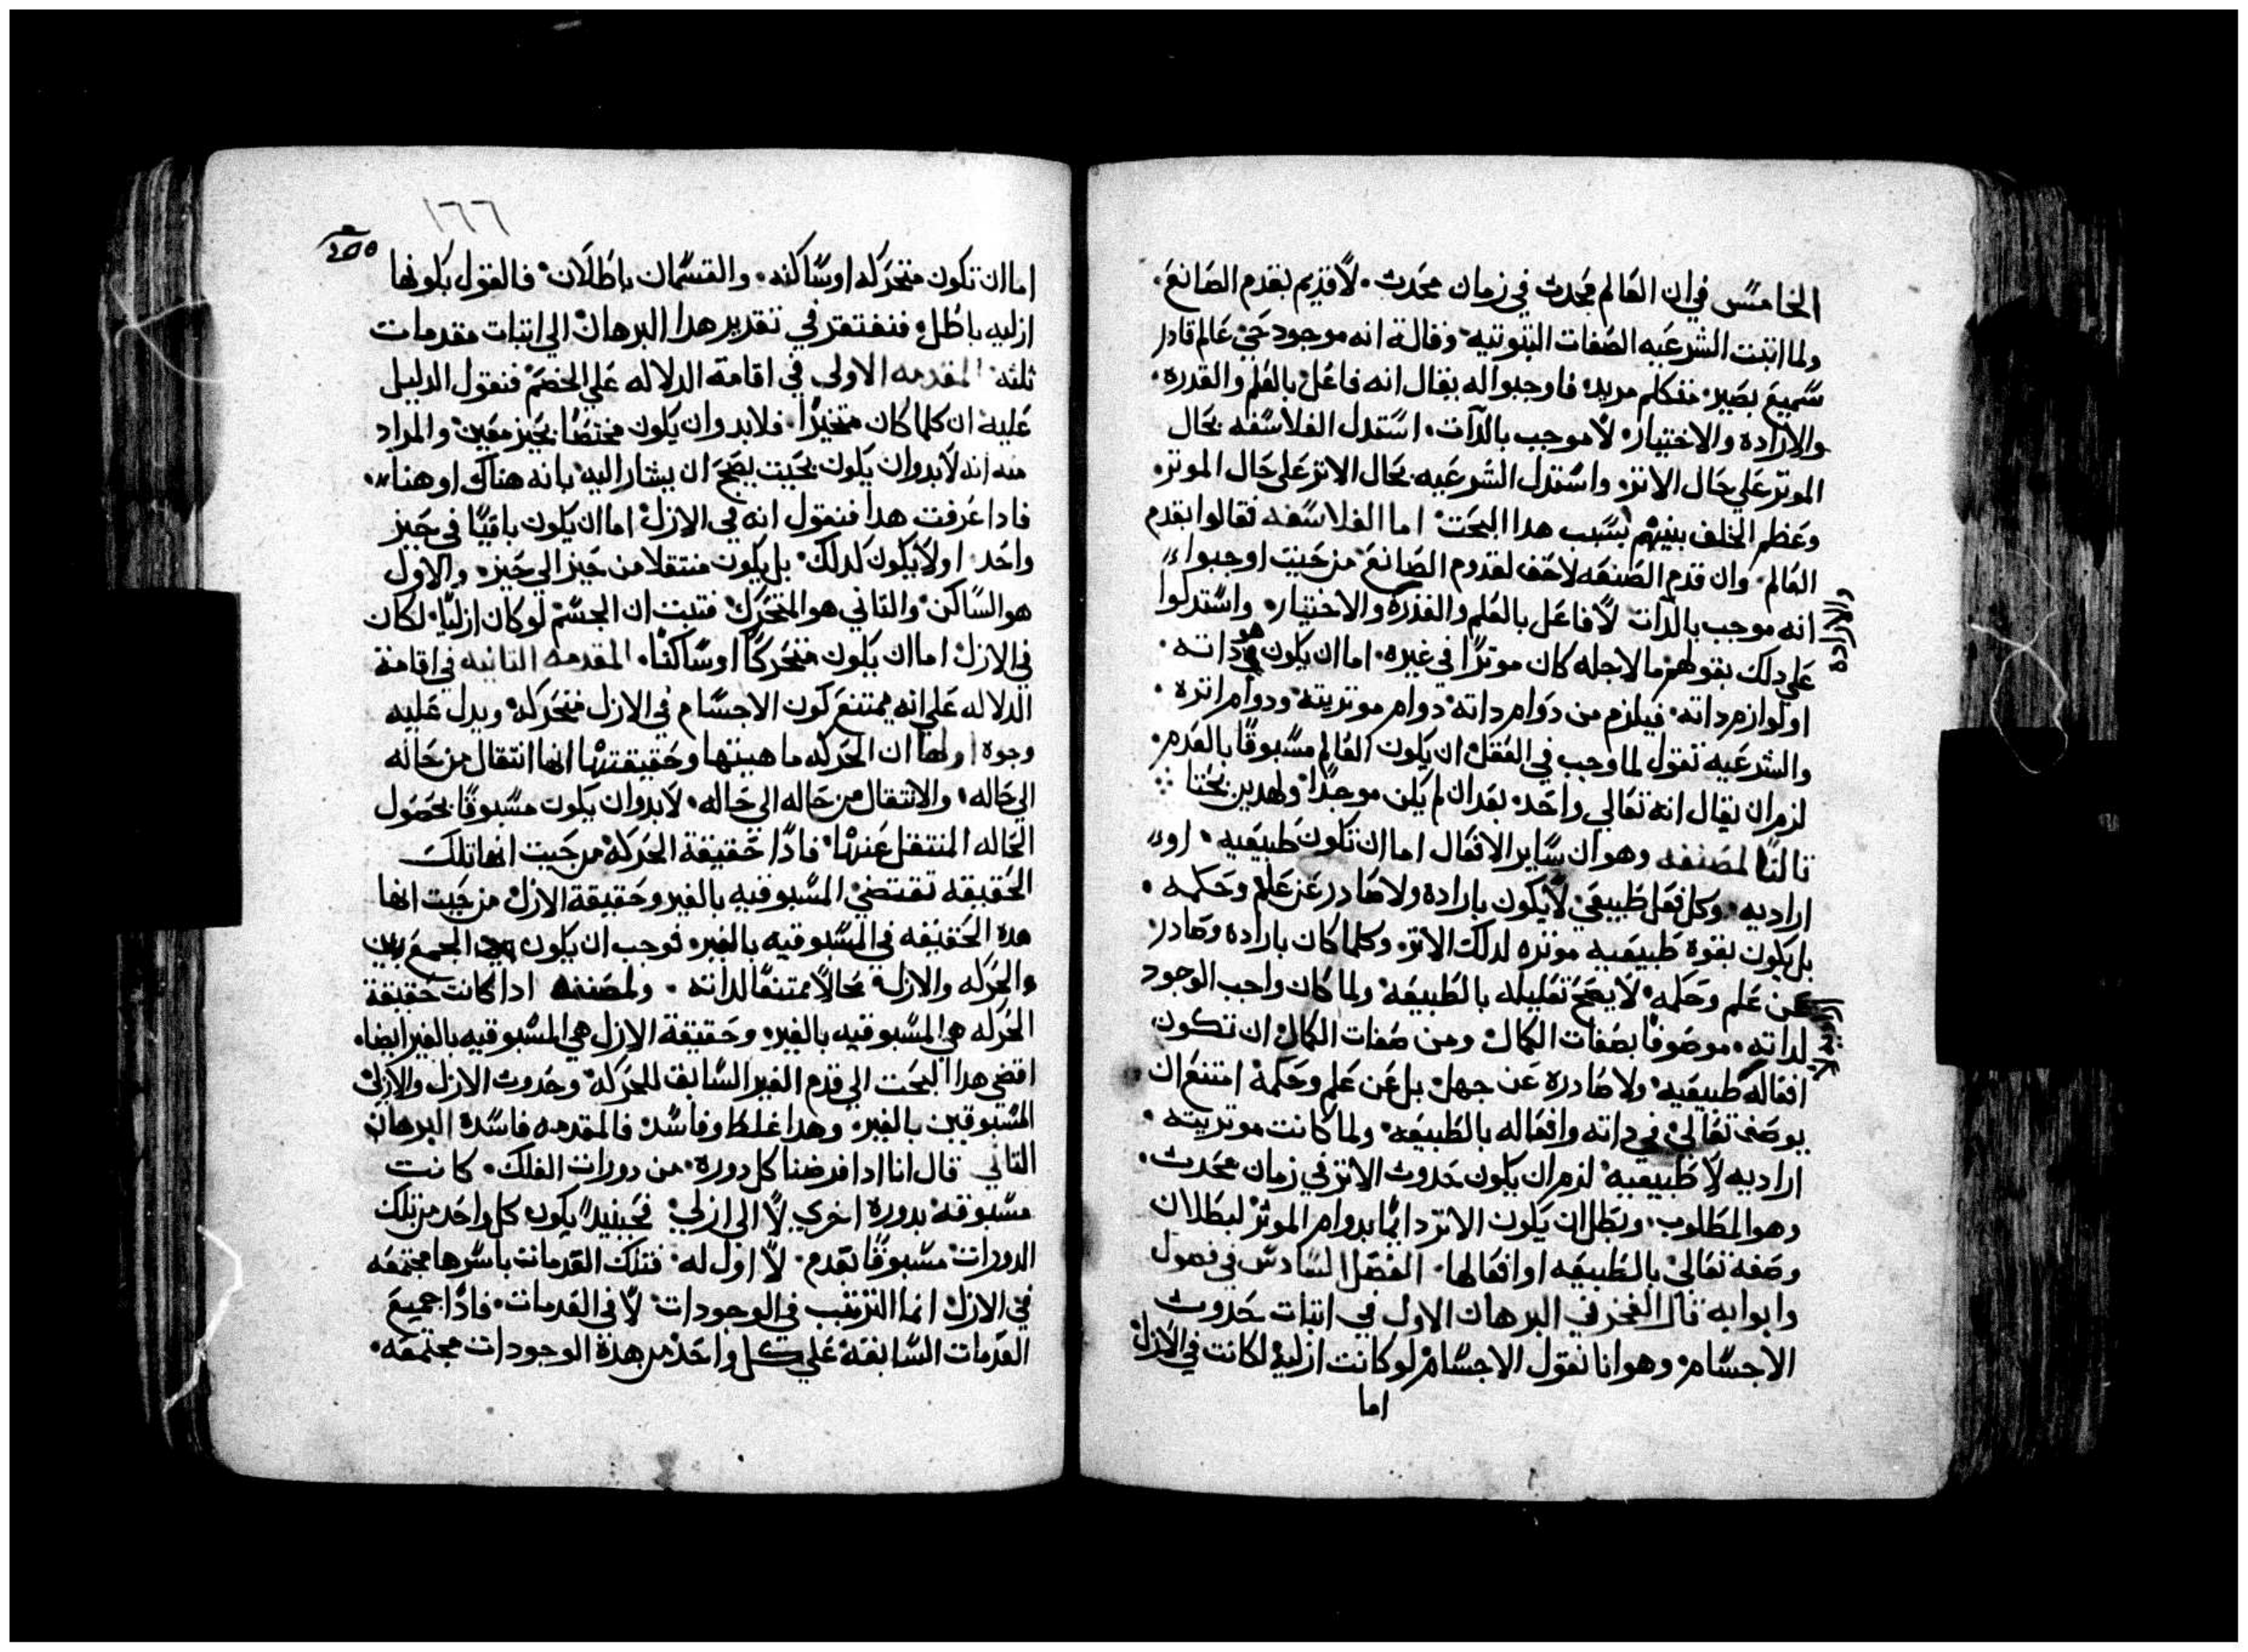 الخامس في ان العالم محدث في زمان محدث. لا قديم بقدم الصانع.
ولما اتبتت الشرعيه الصفات التبوتيه وقالة انه موجود حي عالم قادر
سميع بصير متكلم مريد فاوجبوا له يقال انه فاعل بالعلم والقدره.
والاراده والاختيار لا موجب بالدات. استدل الفلاسفه بحال
الموتر علي حال الاتر واستدل الشرعيه بحال الاتر علي حال الموتر.
وعظم الخلف بينهم بسبب هدا البحت اما الفلاسفه فقالوا بقدم
العالم. وان قدم الصنعه لاحق لقدوم الصانع من حيت اوجبوا
انه موجب بالدات لا فاعل بالعلم والقدرة والاختيار واستدلوا
والارادة
علي دلك بقولهم ما لاجله كان موترا في غيره. اما ان يكون هو داته.
او لوازم داته. فيلزم من دوام داته دوام موتريته ودوام اتره.
والشرعيه تقول لما وجب في العقل ان يكون العالم مسبوقا بالعدم.
لزم ان يقال انه تعالي واحد بعد ان لم يكن موجدا ولهدين بحتا
تالتا لمصنفه وهو ان ساير الافعال اما ان تكون طبيعيه. او
اراديه. وكل فعل طبيعي لا يكون باراده ولا صادر عن علم وحكمه.
بل يكون بقوة طبيعيه موتره لدلك الاتر. وكلما كان باراده وصادر
عن علم وحكمه لا يصح تعليله بالطبيعه ولما كان واجب الوجود
لداته. موصوفا بصفات الكمال ومن صفات الكمال ان تكون
افعاله طبيعيه ولا صادرة عن جهل بل عن علم وحكمة امتنع ان
يوصف تعالي في داته وافعاله بالطبيعه ولما كانت موتريته.
اراديه لا طبيعيه لزم ان يكون حدوت الاتر في زمان محدت.
وهو المطلوب. وبطل ان يكون الاتر دايما بدوام الموتر لبطلان
وصفه تعالي بالطبيعه او افعالها. الفصل السادس في فصول
وابوابه قال الفخر في البرهان الاول في اتبات حدوت
الاجسام. وهو انا نقول الاجسام لو كانت ازلية لكانت في الازل
اما
١٦٦
اما ان تكون متحركه او ساكنه. والقسمان باطلان. فالقول بكونها
ازليه باطل فنفتقر في تقدير هدا البرهان الي اتبات مقدمات
تلته المقدمه الاولي في اقامة الدلاله علي الخصم فنقول الدليل
عليه ان كلما كان متحيزا. فلا بد وان يكون مختصا بحيز معين والمراد
منه انه لا بد وان يكون بحيت يصح ان يشار اليه بانه هناك او هنا.
فادا عرفت هدا فنقول انه في الازل اما ان يكون باقيا في حيز
واحد. او لا يكون كدلك. بل يكون منتقلا من حيز الي حيز. والاول
هو الساكن والتاني هو المتحرك فتبت ان الجسم لو كان ازليا. لكان
في الازل اما ان يكون متحركا او ساكنا. المقدمه التانيه في اقامة
الدلاله علي انه يمتنع كون الاجسام في الازل متحركه ويدل عليه
وجوه اولها ان الحركه ماهيتها وحقيقتها انها انتقال من حاله
الي حاله. والانتقال من حاله الي حاله. لا بد وان يكون مسبوقا بحصول
الحاله المنتقل عنها. فادا حقيقة الحركة من حيت انها تلك
الحقيقه تقتضي المسبوقيه بالغير وحقيقة الازل من حيت انها
هده الحقيقه في المسبوقيه بالغير. فوجب ان يكون الجمع بين
الحركه والازل محالا ممتنعا لداته. ولمصنفه ادا كانت حقيقة
الحركه هي المسبوقيه بالغير وحقيقة الازل هي المسبوقيه بالغير ايضا.
اقضي هدا البحت الي قدم الغير السابق للحركه وحدوت الازل والازل
المسبوقين بالغير. وهدا غلط وفاسد فالمقدمه فاسدة البرهان
التاني قال انا ادا فرضنا كل دورة. من دورات الفلك. كانت
مسبوقة بدورة اخري لا الي ازلي فحينيد يكون كل واحد من تلك
الدورات مسبوقا بعدم. لا اول له. فتلك العدمات باسرها مجتمعه
في الازل انما الترتيب في الوجودات لا في العدمات. فادا جميع
العدمات السابقة علي كل واحد من هدة الوجودات مجتمعه.